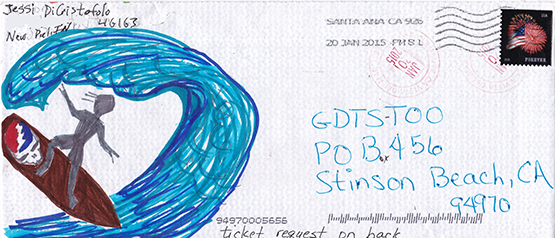 Jessi DiCristofolo
46163
New Pal, IN
SANTA ANA CA 926
20 JAN 2015 PM 8 L
FOREVER
GDTS-TOO
PO Box 456
Stinson Beach, CA
94970
94970005656
ticket request on back